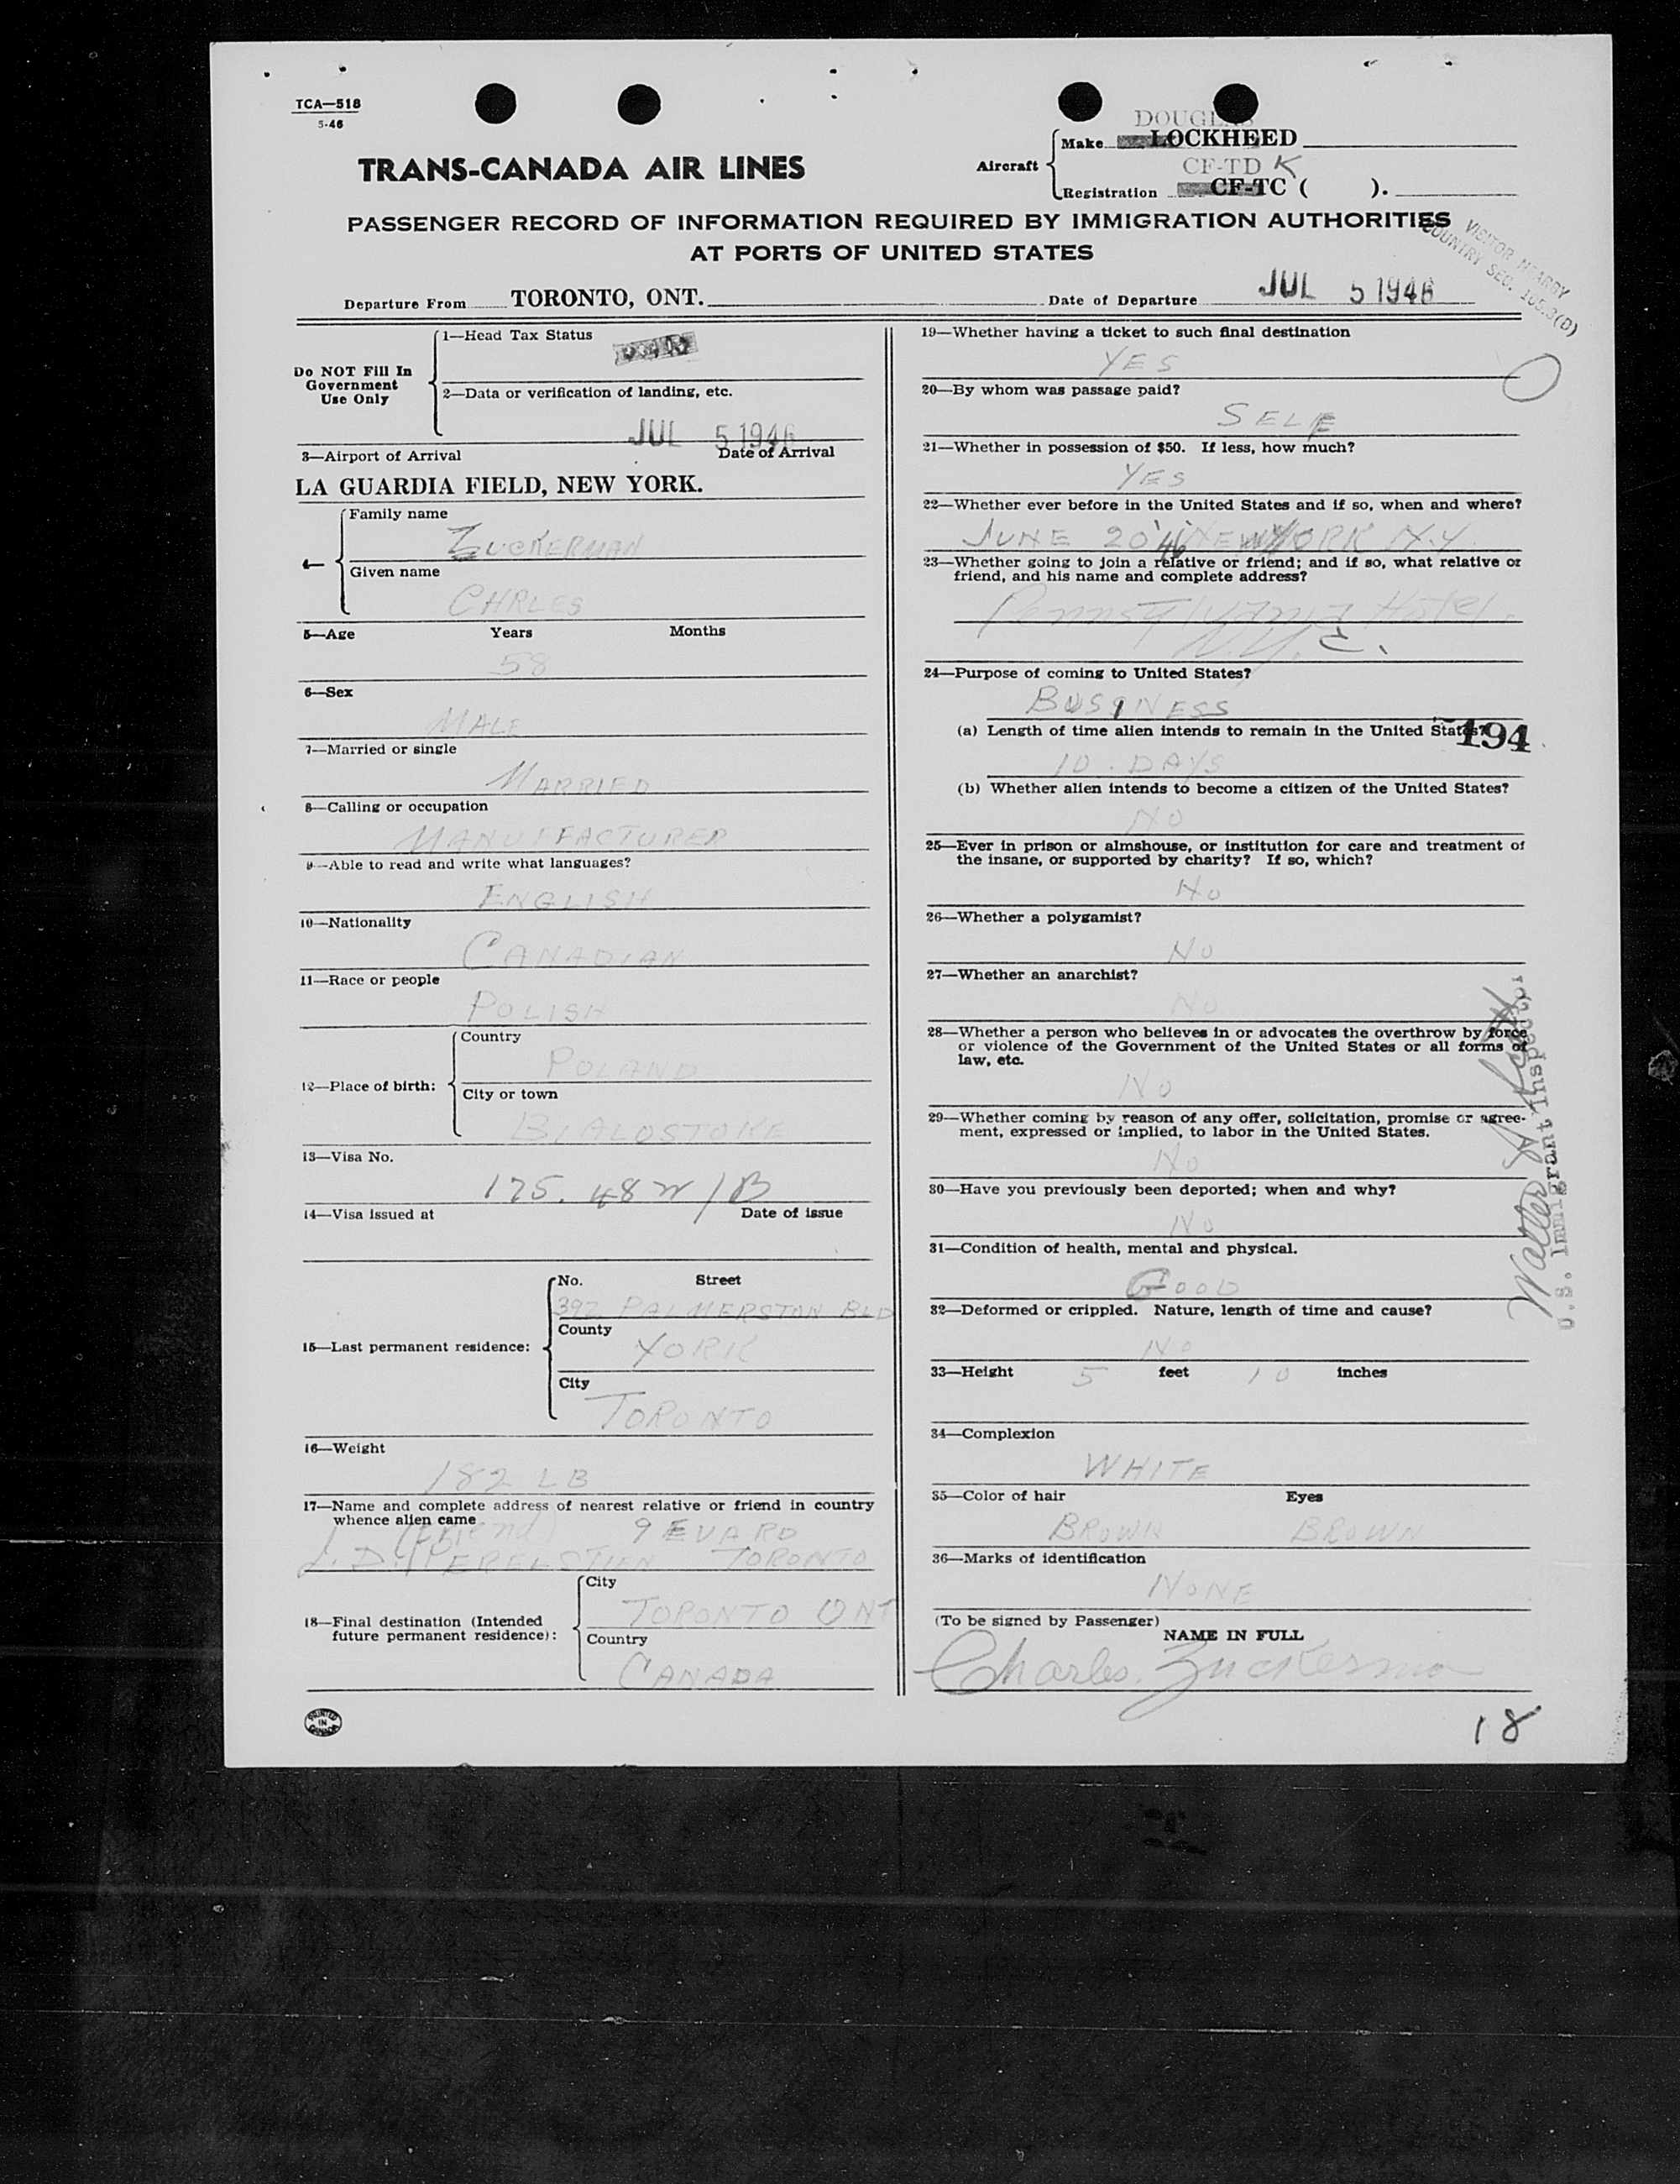 TCA—518
5-46
TRANS-CANADA AIR LINES
Aircraft
DOUGLAS
Make LOCKHEED
CF-TD K
Registration CF-TC ( ).
PASSENGER RECORD OF INFORMATION REQUIRED BY IMMIGRATION AUTHORITIES
AT PORTS OF UNITED STATES
VISITOR NEARBY
COUNTRY SEC. 165.3(D)
Departure From TORONTO, ONT. Date of Departure JUL 5 1946
Do NOT Fill In
Government
Use Only
1—Head Tax Status
2—Data or verification of landing, etc.
JUL 5 1946
3—Airport of Arrival Date of Arrival
LA GUARDIA FIELD, NEW YORK.
4—
Family name
ZUCKERMAN
Given name
CHRLES
5—Age Years Months
58
6—Sex
MALE
7—Married or single
MARRIED
8—Calling or occupation
MANUFFACTURER
9—Able to read and write what languages?
ENGLISH
10—Nationality
CANADIAN
11—Race or people
POLISH
12—Place of birth:
Country
POLAND
City or town
BIALOSTOKE
13—Visa No.
175. 48
14—Visa issued at Date of issue
15—Last permanent residence:
No. Street
392 PALMERSTON BLD
County
YORK
City
TORONTO
16—Weight
182 LB
17—Name and complete address of nearest relative or friend in country
whence alien came
(friend) 9 EVARD
TORONTO
18—Final destination (Intended
future permanent residence):
City
TORONTO ONT
Country
CANADA
PRINTED
IN
CANADA
19—Whether having a ticket to such final destination
YES
20—By whom was passage paid?
SELF
21—Whether in possession of $50. If less, how much?
YES
22—Whether ever before in the United States and if so, when and where?
JUNE 20 '46 NEW YORK N.Y.
23—Whether going to join a relative or friend; and if so, what relative or
friend, and his name and complete address?
Pennsylvania Hotel.
N.Y.C.
24—Purpose of coming to United States?
BUSINESS
(a) Length of time alien intends to remain in the United States?
194
10 . DAYS
(b) Whether alien intends to become a citizen of the United States?
NO
25—Ever in prison or almshouse, or institution for care and treatment of
the insane, or supported by charity? If so, which?
NO
26—Whether a polygamist?
NO
27—Whether an anarchist?
NO
28—Whether a person who believes in or advocates the overthrow by force
or violence of the Government of the United States or all forms of
law, etc.
NO
29—Whether coming by reason of any offer, solicitation, promise or agree-
ment, expressed or implied, to labor in the United States.
NO
30—Have you previously been deported; when and why?
NO
31—Condition of health, mental and physical.
GOOD
32—Deformed or crippled. Nature, length of time and cause?
NO
33—Height 5 feet 10 inches
34—Complexion
WHITE
35—Color of hair Eyes
BROWN BROWN
36—Marks of identification
NONE
(To be signed by Passenger)
NAME IN FULL
Charles Zuckerman
Walter
U.S. Immigrant Inspector
18